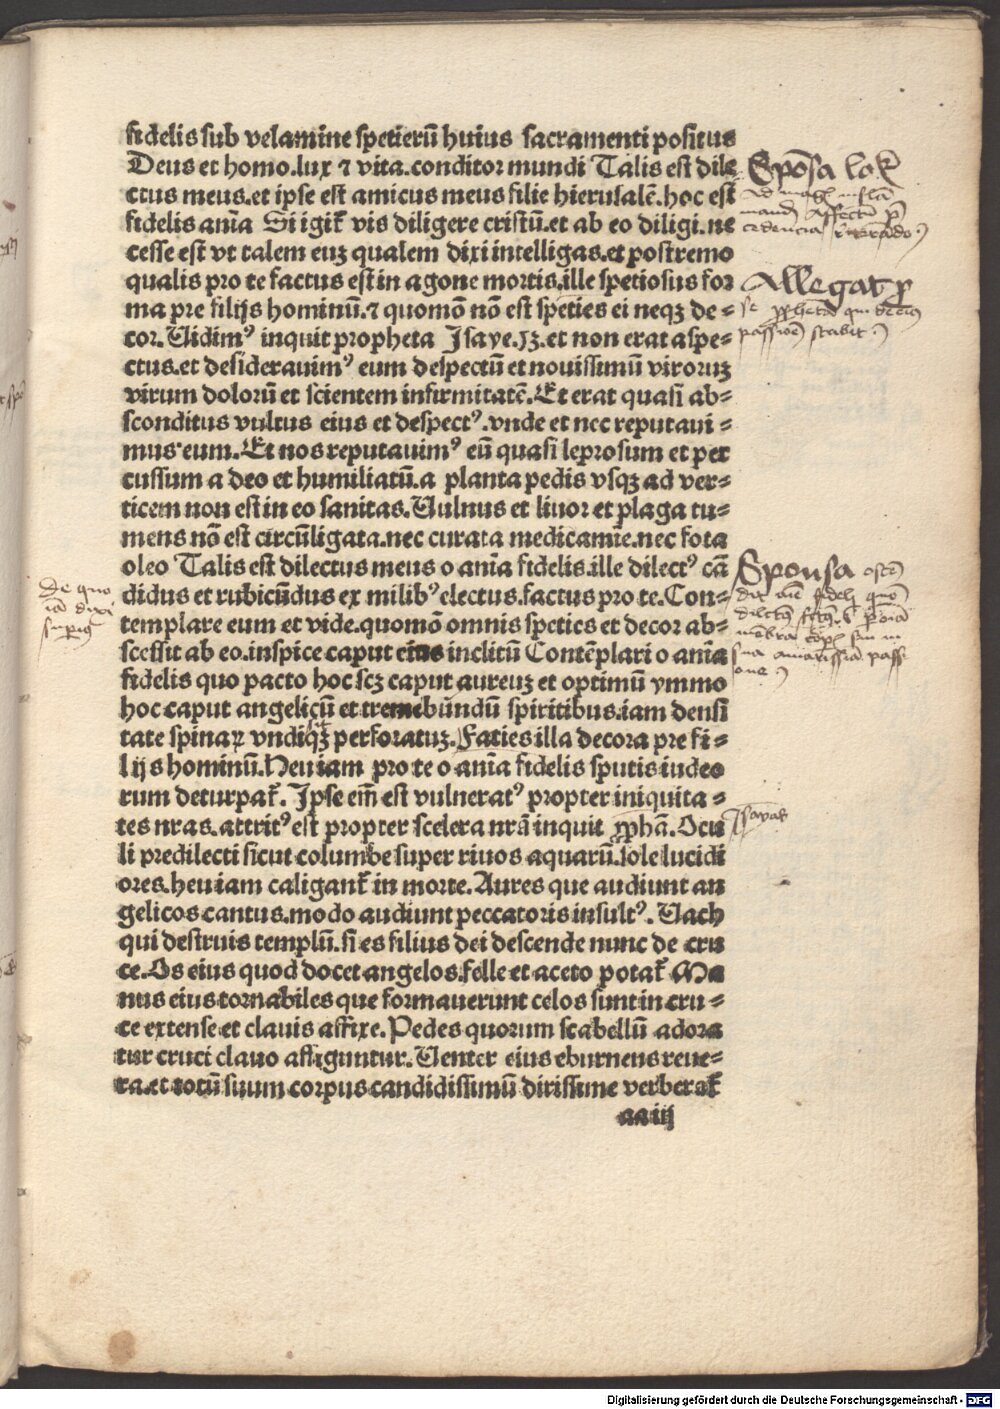 fidelis sub velamine spetierū huius sacramenti positus
Deus et homo.lux ⁊ vita.conditor mundi Talis est dile
ctus meus.et ipse est amicus meus filie hierusalē.hoc est
fidelis anīa Si igit̄ vis diligere cristū.et ab eo diligi.ne
cesse est vt talem euꝫ qualem dixi intelligas.et postremo
qualis pro te factus est in agone mortis.ille spetiosus for
ma pre filijs hominū.⁊ quomō nō est speties ei neqꝫ de⸗
cor.Uidimꝰ inquit propheta Isaye.53.et non erat aspe⸗
ctus.et desiderauimꝰ eum despectū et nouissimū viroruꝫ
virum dolorū et scientem infirmitatē.Et erat quasi ab⸗
sconditus vultus eius et despectꝰ.vnde et nec reputaui⸗
mus eum.Et nos reputauimꝰ eū quasi leprosum et per
cussum a deo et humiliatū.a planta pedis vsqꝫ ad ver⸗
ticem non est in eo sanitas.Uulnus et liuor et plaga tu⸗
mens nō est circūligata.nec curata medicamīe.nec fota
oleo Talis est dilectus meus o anīa fidelis.ille dilectꝰ cā
didus et rubicūdus ex milibꝰ electus.factus pro te.Con⸗
templare eum et vide.quomō omnis speties et decor ab⸗
scessit ab eo.inspice caput eius inclitū Contēplari o anīa
fidelis quo pacto hoc scꝫ caput aureuꝫ et optimū ymmo
hoc caput angelicū et tremebūndū spiritibus.iam densi
tate spinaꝝ vndiqꝫ perforatuꝫ.Faties illa decora pre fi⸗
lijs hominū.Heu iam pro te o anīa fidelis sputis iudeo
rum deturpat̄. Ipse em̄ est vulneratꝰ propter iniquita⸗
tes nras.attritꝰ est propter scelera nrā inquit ꝓphā.Ocu
li predilecti sicut columbe super riuos aquarū.sole lucidi
ores.heu iam caligant̄ in morte.Aures que audiunt an
gelicos cantus.modo audiunt peccatoris insultꝰ. Uach
qui destruis templū.si es filius dei descende nunc de cru
ce.Os eius quod docet angelos.felle et aceto potat̄ Ma
nus eius tornabiles que formauerunt celos sunt in cru⸗
ce extense et clauis affixe.Pedes quorum scabellū adora
tur cruci clauo affiguntur.Uenter eius eburneus reue⸗
ra.et totū suum corpus candidissimū dirissime verberat̄
aa iij
Sponsa
Allegat
passionē
Sponsa
de quo
Isayas
Digitalisierung gefördert durch die Deutsche Forschungsgemeinschaft - DFG